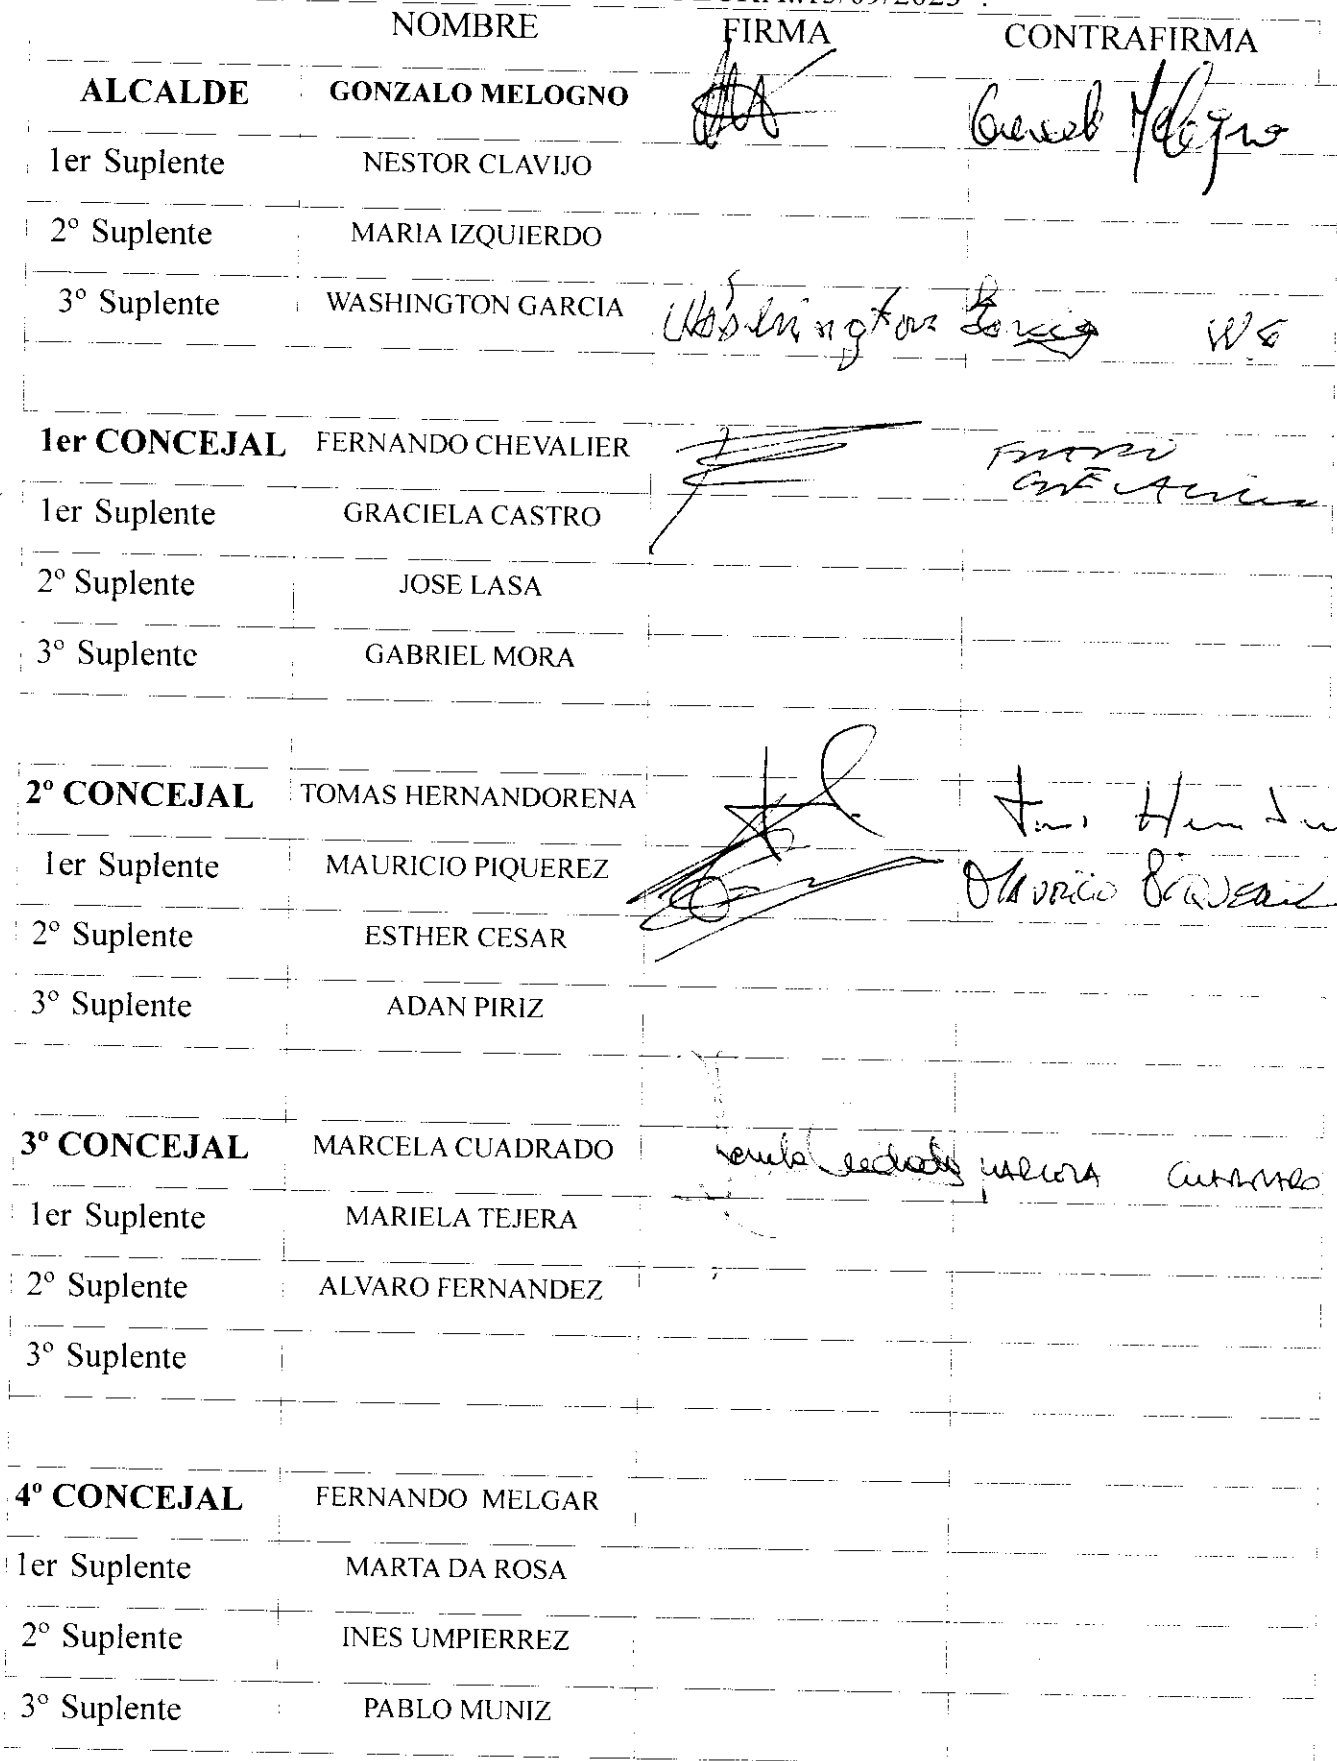 NOMBRE FIRMA CONTRAFIRMA
ALCALDE GONZALO MELOGNO Melogno
1er Suplente NESTOR CLAVIJO
2º Suplente MARIA IZQUIERDO
3º Suplente WASHINGTON GARCIA Washington Garcia WG
1er CONCEJAL FERNANDO CHEVALIER
1er Suplente GRACIELA CASTRO
2º Suplente JOSE LASA
3º Suplente GABRIEL MORA
2º CONCEJAL TOMAS HERNANDORENA
1er Suplente MAURICIO PIQUEREZ MAURICIO PIQUEREZ
2º Suplente ESTHER CESAR
3º Suplente ADAN PIRIZ
3º CONCEJAL MARCELA CUADRADO MARCELA CUADRADO
1er Suplente MARIELA TEJERA
2º Suplente ALVARO FERNANDEZ
3º Suplente
4º CONCEJAL FERNANDO MELGAR
1er Suplente MARTA DA ROSA
2º Suplente INES UMPIERREZ
3º Suplente PABLO MUNIZ